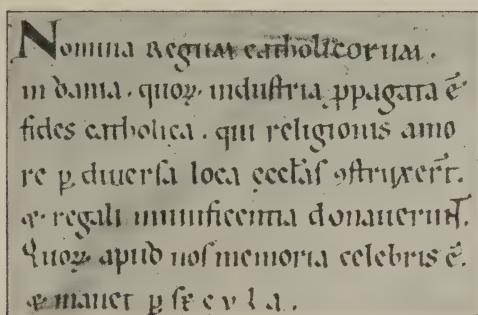 Nomina regum catholicorum.
in dania. quoꝝ. industria ꝓpagata ē
fides catholica. qui religionis amo
re ꝑ diuersa loca eccłas ꝯstruxert̄.
⁊ regali munificentia donauerunt.
Quoꝝ apud nos memoria celebris ē.
⁊ manet ꝑ secula.